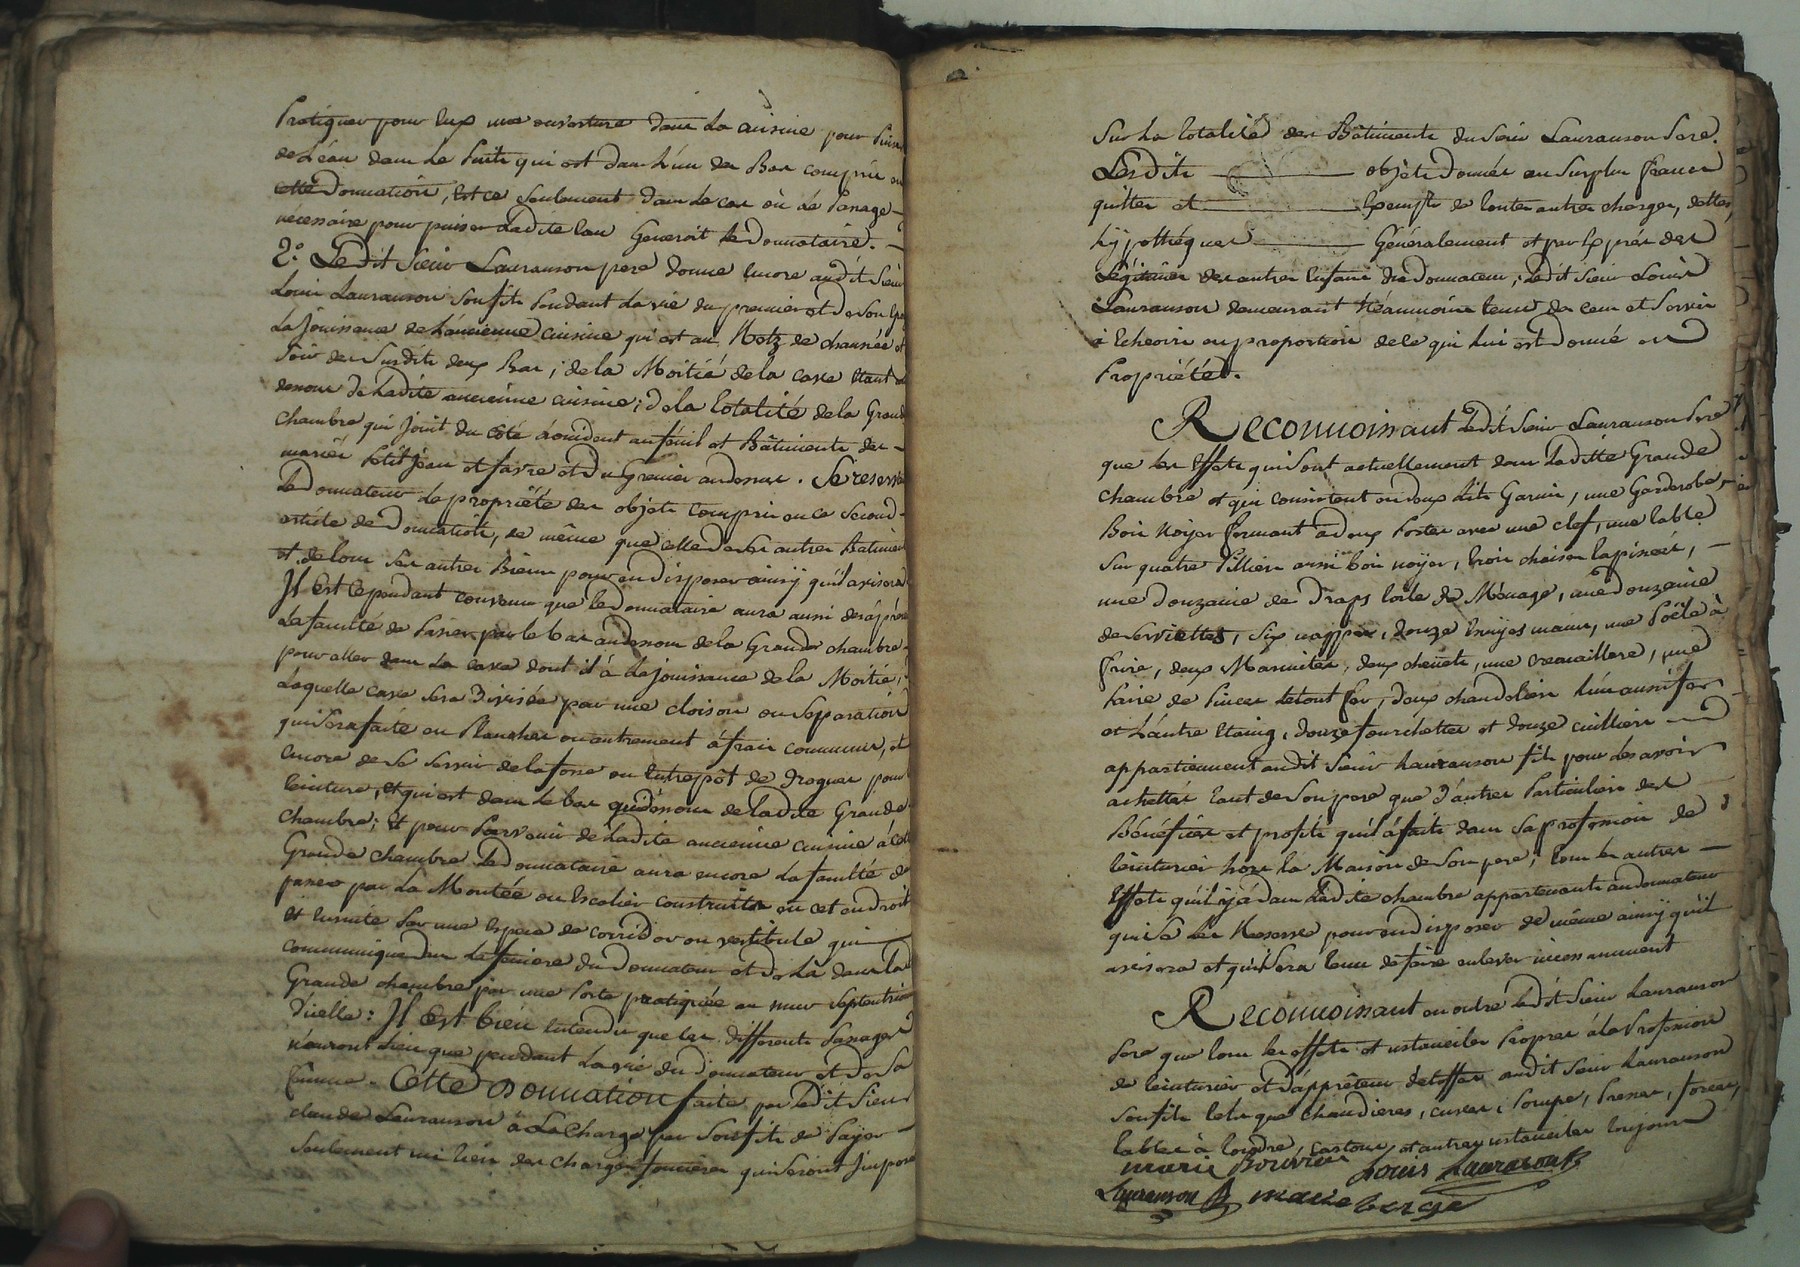 Pratiquer pour lux une ouverture dans La cuisine pour Puiser
de L'éau dans Le Puits qui est dans L'un des Bas compris en
cette Donnation, Et ce Seulement dans Le cas où Le Passage
nécessaire pour puiser Ladite Eau Generoit le Donnataire.
2.° Ledit Sieur Lauranson pere donne Encore audit Sieur
Louis Lauranson Son fils Pendant La vie du premier et de Son Epouse
La Jouissance de L'ancienne cuisine qui est au Retz de chaussée et
Soir des Susdits deux Bas ; de la Moitié de la cave Etant au
dessous de Ladite ancienne cuisine ; de la Totalité de la Grande
chambre qui Jouit du côté d'occident au feuil et Bâtiments des
mariés Petitjean et favre et du Grenier au dessus. Se reserve
Le Donnateur La propriété des objets Compris en ce Second
article de Donnation, de même que celle de Ses autres Batiments
et de tous Ses autres Biens pour en disposer ainsy qu'il avisera
Il Est Cependant convenu que le Donnataire aura aussi des à présent
La faculté de Passer par le bas au dessous de la Grande chambre
pour aller dans La cave dont il à La Jouissance de la Moitié,
Laquelle cave Sera Divisée par une cloison ou Séparation
qui Sera faite en Plancher ou autrement à frais communs, et
encore de Se Servir de la fosse ou Entrepôt de Drogues pour
teinture, Et qui est dans le bas au dessous de Ladite Grande
chambre ; Et pour Parvenir de Ladite ancienne cuisine à cette
Grande chambre Le Donnataire aura encore La faculté de
passer par La Montée ou Escalier construite en cet endroit
et Ensuite Par une Espece de corridor ou vestibule qui
communique dans La feniere du Donnateur et de Là dans la
Grande chambre par une Porte pratiquée au mur Septentrion
d'icelle : Il Est bien Entendu que les differents Passages
n'auront Lieu que pendant La vie du Donnateur et de Sa
femme. Cette Donnation faite par Ledit Sieur
claude Lauranson à La Charge par Son fils de Payer
Seulement un tiers des charges foncieres qui Seront Imposé
Sur La totalité des Bâtiments du Sieur Lauranson Pere.
Lesdits objets Donnés au Surplus francs
quittes et Exempts de toutes autres charges, dettes,
hypothéques Généralement et par Exprés des
Légitimes des autres Enfans du Donnateur ; Ledit Sieur Louis
Lauranson demeurant Néanmoins tenu de ceux et Servis
à Echeoir en proportion de ce qui Lui est Donné en
Propriété.
Reconnoissant Ledit Sieur Lauranson Pere
que les Effets qui Sont actuellement dans Laditte Grande
chambre et qui consistent en deux Lits Garnis, une Garderobe
Bois Noyer fermant à deux Portes avec une clef, une table
Sur quatre Pilliers aussi bois noyer, trois chaises tapissées,
une Douzaine de Draps toile de Ménage, une Douzaine
de Serviettes, Six nappes, douze Essuyes mains, une Poële à
frire, deux Marmites, deux chenêts, une cremaillere, une
Paire de Pinces le tout fer, deux chandeliers L'un aussi fer
et L'autre Etaing, douze fourchettes et douze cuilliers
appartiennent audit Sieur Lauranson fils pour les avoir
achettés tant de Son pere que d'autres Particuliers des
Bénéfices et profits qu'il à faits dans Sa profession de
teinturier hors la Maison de Son pere ; tous les autres
Effets qu'il y à dans Ladite chambre appartenants au donnateur
qui Se Les Reserve pour en disposer de même ainsy qu'il
avisera et qu'il Sera tenu de faire enlever incessamment
Reconnoissant en outre Ledit Sieur Lauranson
Pere que tous les effets et ustancilles Propres à La Profession
de teinturier et d'apprêteur d'étoffes audit Sieur Lauranson
Son fils tels que Chaudieres, cuves, Pompe, Presses, forces,
tables à tondre, cartons, et autres ustanciles toujours
marie Bouvier Louis Lauranson fs
Lauranson P. marie berge